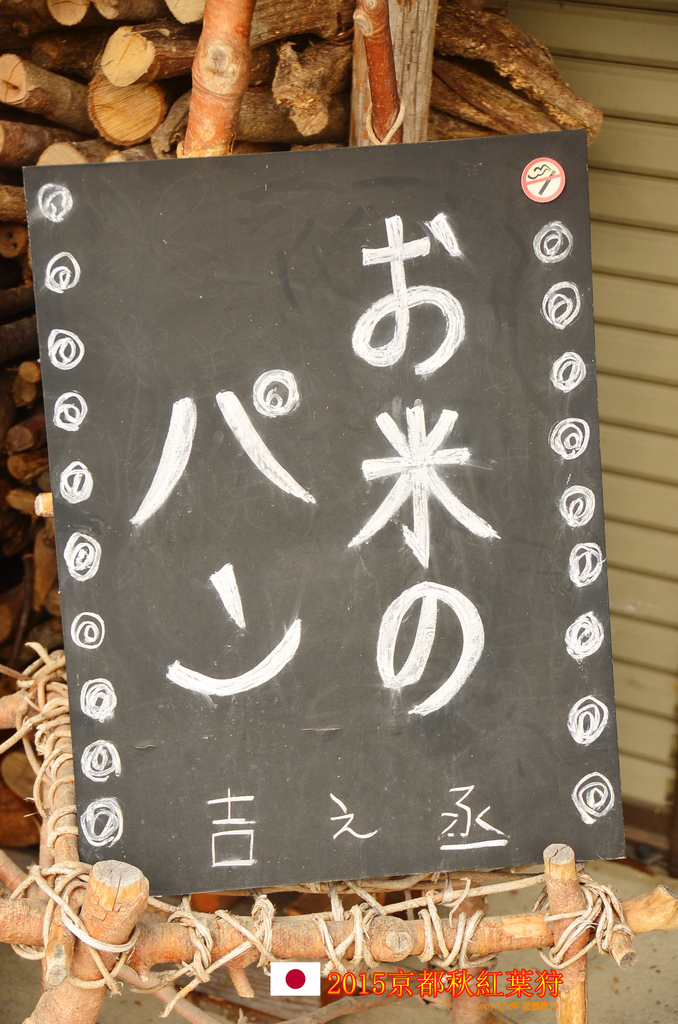 お米の
パン
吉え丞
2015京都秋紅葉狩